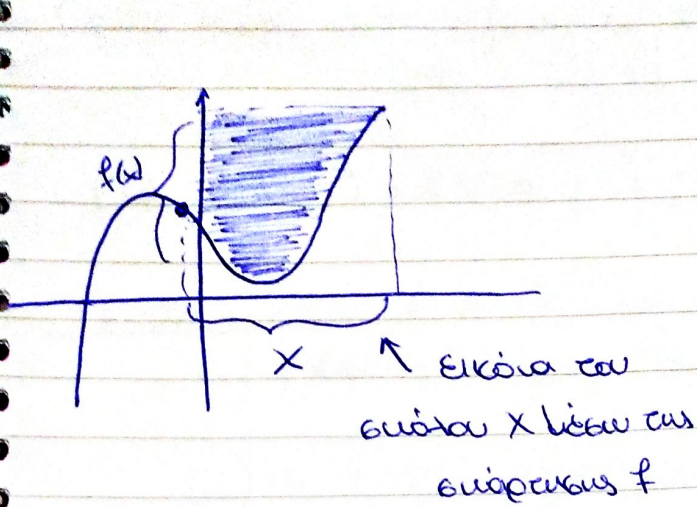 f(x)
X
εικόνα του
συνόλου X μέσω της
συνάρτησης f